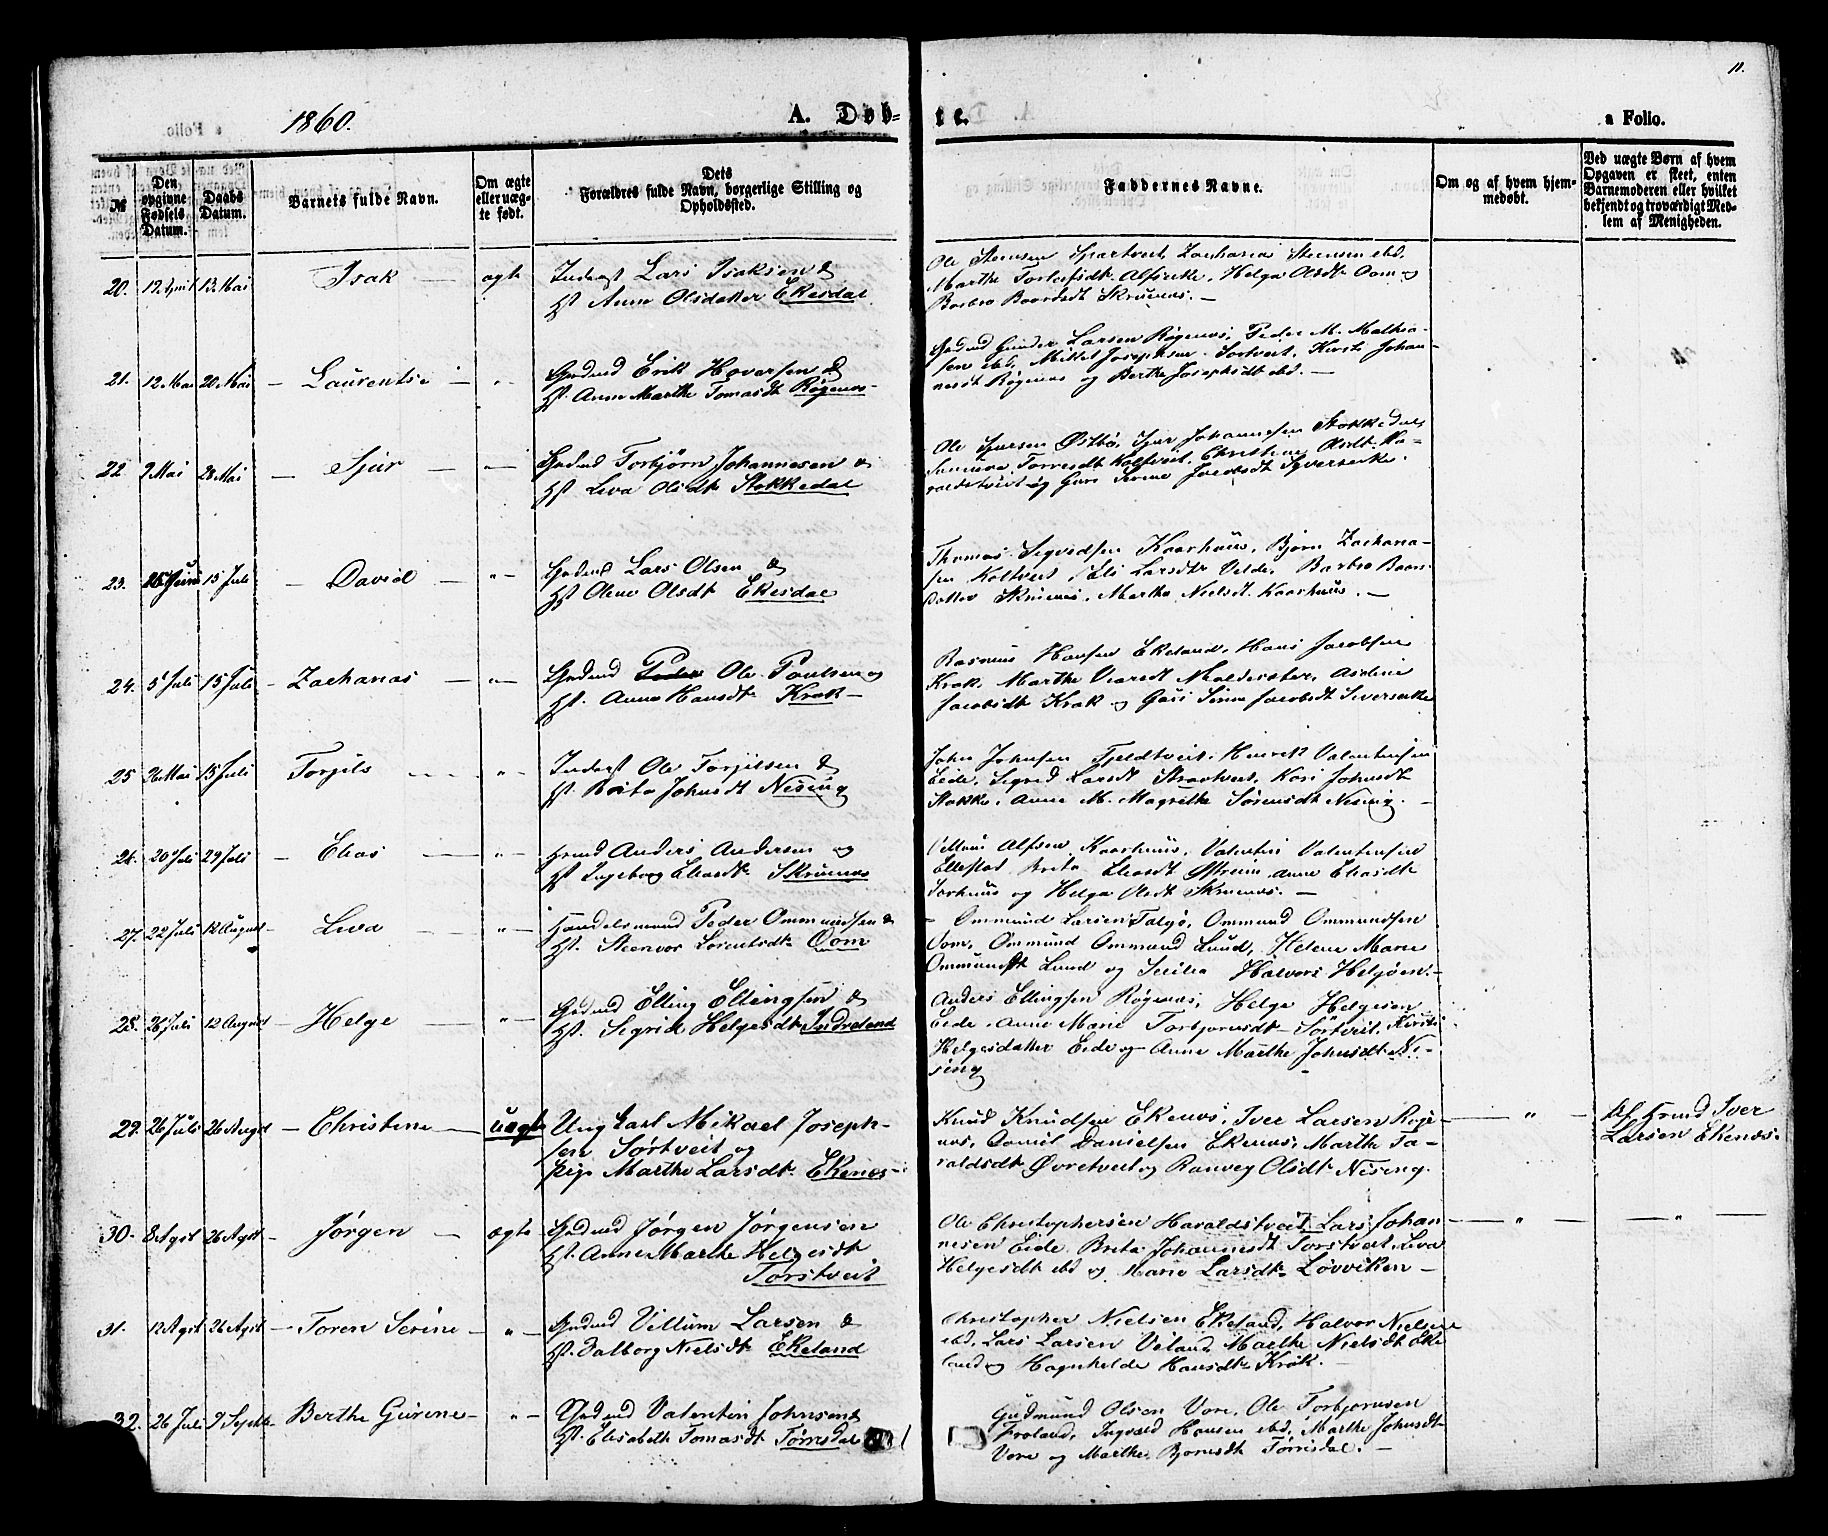 11.
1860.
A. Døb-
te.
a Folio.
№
Den opgivne Fødsels Datum.
Daabs Datum.
Barnets fulde Navn.
Om ægte eller uægte født.
Dets Forældres fulde Navn, borgerlige Stilling og Opholdsted.
Faddernes Navne.
Om og af hvem hjemmedøbt.
Ved uægte Børn af hvem Opgaven er skeet, enten Barnemoderen eller hvilket bekjendt og troværdigt Medlem af Menigheden.
20. 13 Mai Isak — ægte Lars Isaksen &
Hst. Anne Olsdatter Ekesdal
Ole Steensen Zacharias Steensen ebd.
Marthe Helga Olsdt. Oom og
Barbro Baardsdt Skruenes. —
21. 12 Mai 20 Mai — Laurentse — " — Gaдmd Erik Haversen &
Hst. Anne Marthe Tomasdt Røgenes —
Gunder Larsen Røgenes, Peder M. Mathia-
sen ebd, Mikkel Josephsen Sørtveit, Kirsti Johan-
nesdt Røgenes og Berthe Josephsdt ebd. —
22 9 Mai 28 Mai — Sjur — " — Torbjørn Johannesen &
Hst. Liva Olsdt Stokkedal
Ole Sjursen Østbø, Sjur Johannesen Stokkedal,
Christine Olsdt Ha-
raldstveit og Guri Serine
23. 15 Juli — David — " — Lars Olsen &
Hst. Olene Olsdt Ekesdal
Thomas Sigvedsen Kaarhuus, Bjørn Zacharia-
sen Eli Larsdtr Velde, Barbro Baars-
datter Skruenes, Marthe Nielsdt. Kaarhuus. —
24. 5 Juli 15 Juli — Zacharias — " — Ole Paulsen og
Hst. Anne Hansdt Krak —
Rasmus Hansen Ekeland, Hans Jacobsen
Krak, Marthe
Jacobsdt Krak og Guri Serine Jacobsdt
25 26 Mai 15 Juli Torgils — " — Ole Torgilsen &
Hst. Brita Johnsdt Nising
John Johnsen Fjeldtveit, Henrik Valentinsen
Eide, Sigrid Larsdt Kari Johnsdt
Stokke, Anne M. Magrethe Sørensdt Nising. —
26. 20 Juli 29 Juli — Elias — " — Anders Andersen og
Hst. Ingeborg Eliasdt Skruenes
Villum Alfsen Kaarhuus, Valentin Valentinsen
Ellestad, Brita Eliasdt Anne Eliasdt
og Helga Olsdt Skruenes. —
27. 22 Juli 12 August — Liva — " — Handelsmand Peder Ommundsen &
Hst. Steenvor Lorentsdt Oom
— Ommund Larsen Ommund Ommundsen
Oom, Ommund Ommund. Lund, Helene Marie
Ommundsdt Lund og Halvors.
28. 26 Juli 12 August — Helge — " — Elling Ellingsen &
Hst. Sigrid Helgesdt Indreland
Anders Ellingsen Røgenes, Helge Helgesen
Eide, Anne Marie Torbjørnsdt Sørtveit, Kirsti
Helgesdatter Eide og Anne Marthe Johnsdt Ni-
sing
29. 26 Juli 26 August — Christine — uægte Ung Carl Mikael Joseph-
sen Sørtveit og
Pige Marthe Larsdt. Ekenes —
Knud Knudsen Ekenes, Iver Larsen Røge-
nes, Daniel Danielsen Ekenes, Marthe Ta-
raldsdt Øvretveit og Ranveg Olsdt Nising.
— " — Af Iver
Larsen Ekenes.
30. 8 Agst 26 Agst — Jørgen — ægte Jørgen Jørgensen
Hst. Anne Marthe Helgesdt
Torstveit
Ole Christophersen Haraldstveit, Lars Johan-
nesen Eide, Brita Johannesdt Torstveit, Liva
Helgesdt ebd og Marie Larsdt Løvviken —
— " — — " —
31. 12 Agst 26 Agst — Toren Serine — " — Villum Larsen &
Hst. Valborg Nielsdt Ekeland
Christopher Nielsen Ekeland, Halvor Nielsen
ebd, Lars Larsen Marthe Nielsdt Eke-
land og Hansdt Krak. —
32. 26 Juli 9 Septbr — Berthe Gurine — " — Valentin Johnsen &
Hst. Elisabeth Tomasdt Tørresdal
Gudmund Olsen Vore, Ole Torbjørnsen
Frøland, Ingvald Hansen ebd, Marthe Johnsdt
Vore og Marthe Bjørnsdt Tørrisdal. —